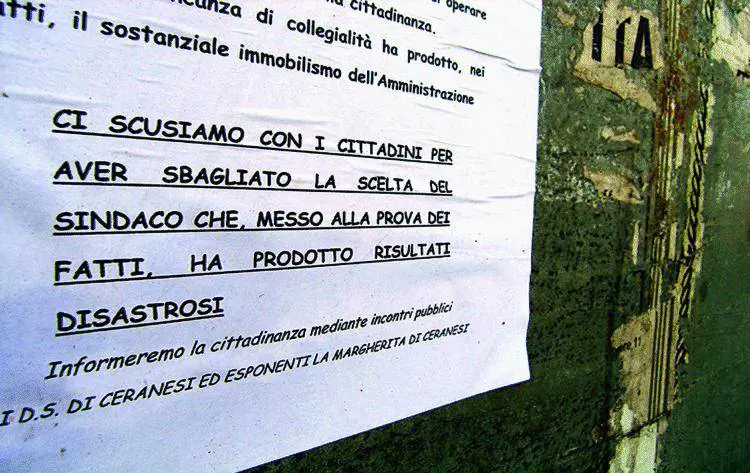 operare
cittadinanza.
di collegialità ha prodotto, nei
il sostanziale immobilismo dell'Amministrazione
CI SCUSIAMO CON I CITTADINI PER
AVER SBAGLIATO LA SCELTA DEL
SINDACO CHE, MESSO ALLA PROVA DEI
FATTI, HA PRODOTTO RISULTATI
DISASTROSI
Informeremo la cittadinanza mediante incontri pubblici
I D.S. DI CERANESI ED ESPONENTI LA MARGHERITA DI CERANESI